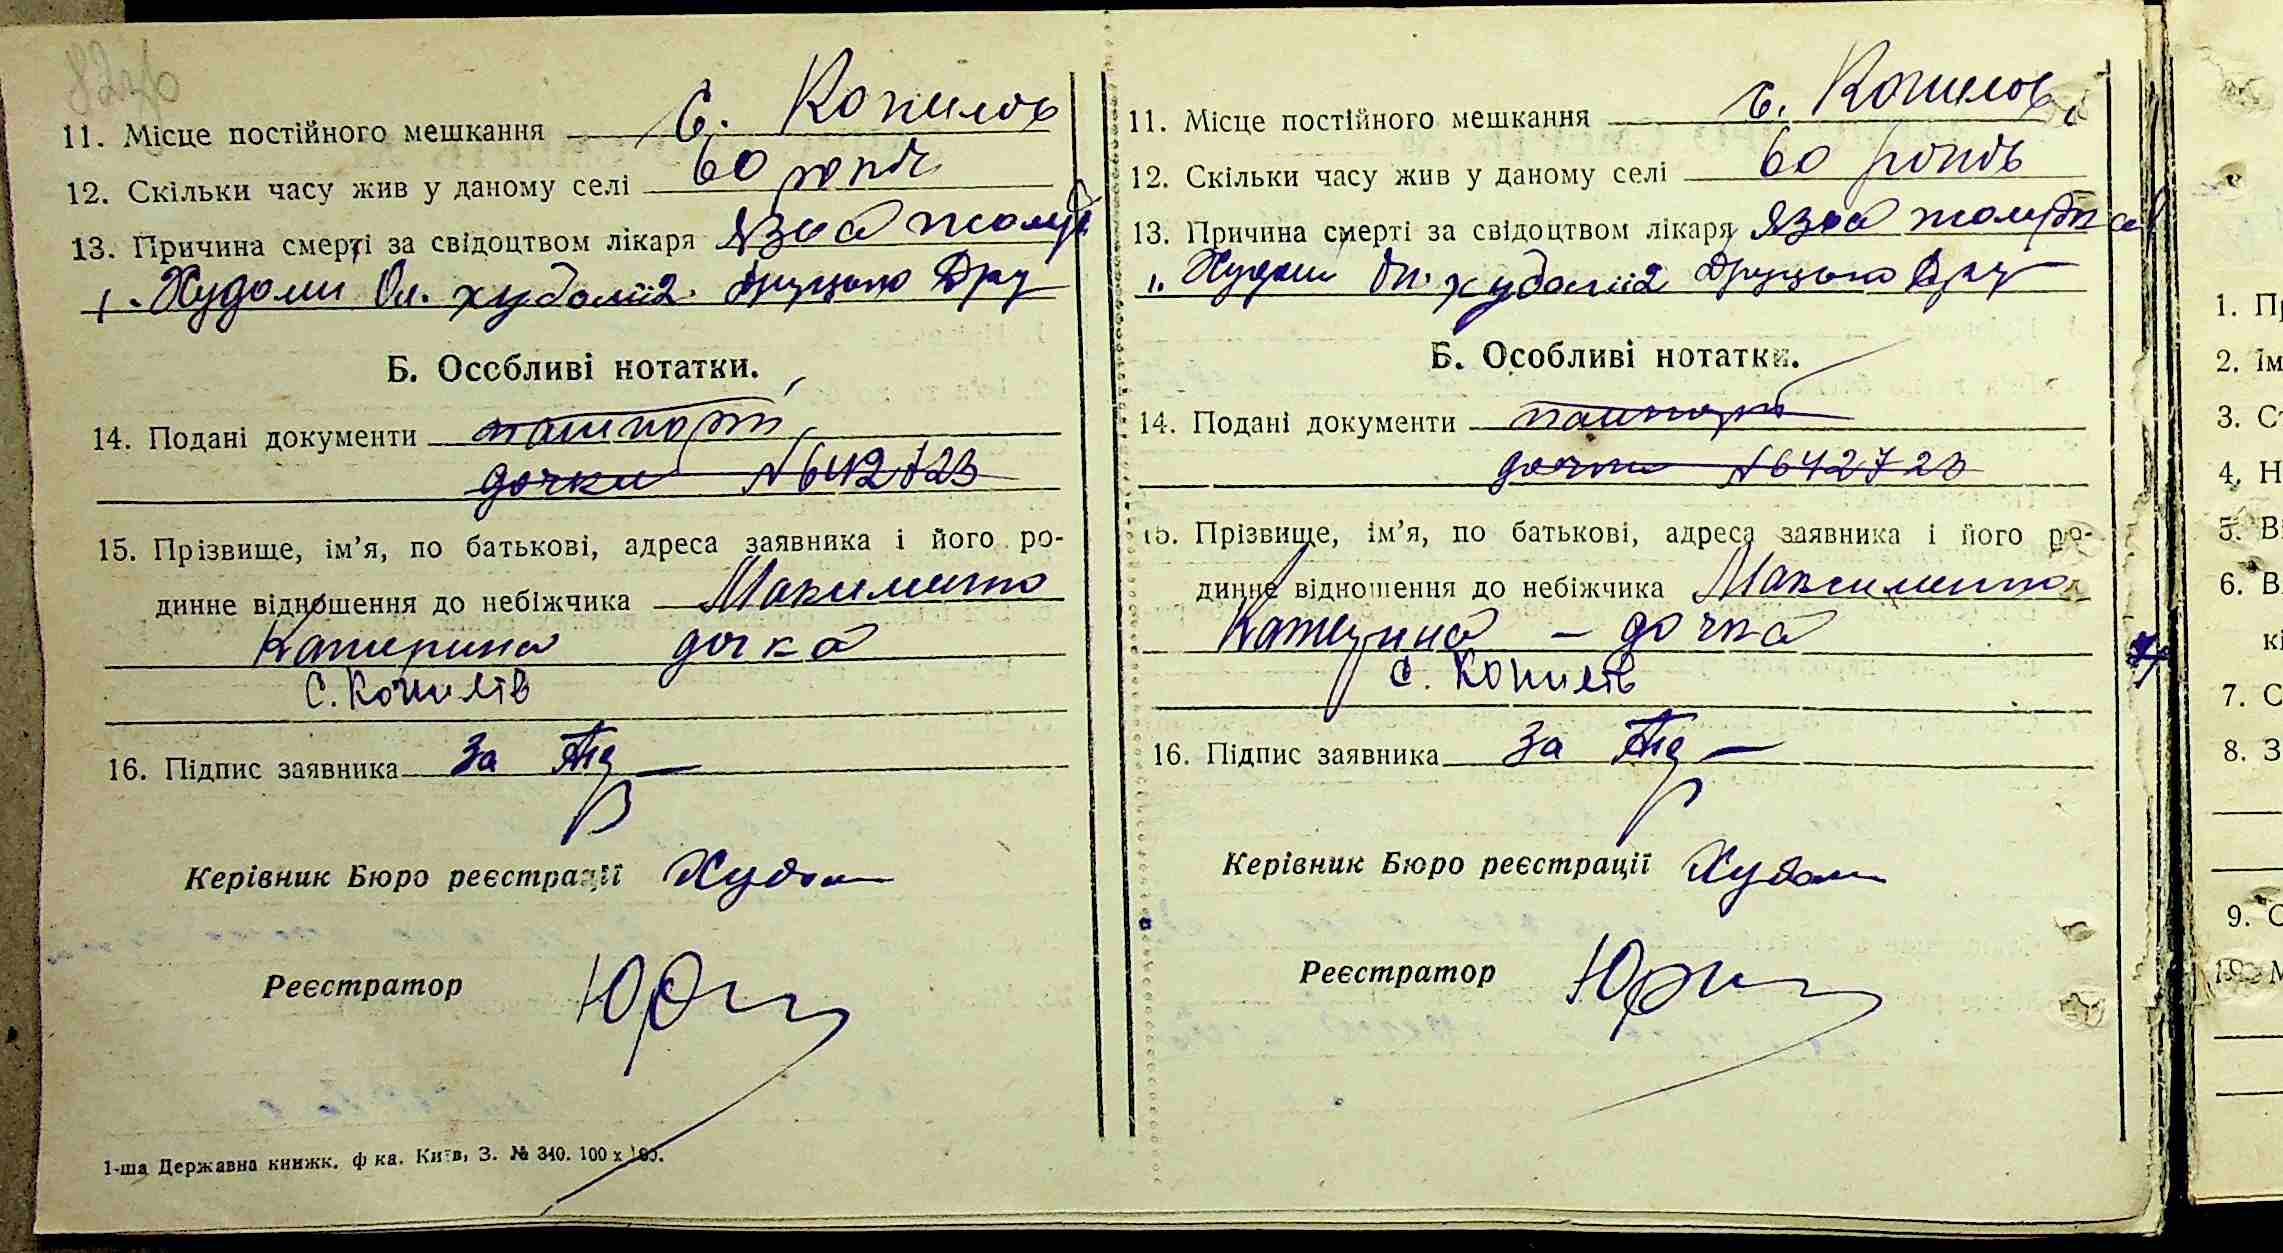 82зв
11. Місце постійного мешкання с. Копилов
12. Скільки часу жив у даному селі 60 років
13. Причина смерті за свідоцтвом лікаря язва
Худоми Ол.
Б. Особливі нотатки.
14. Подані документи пашпорт
дочки №642723
15. Прізвище, ім’я, по батькові, адреса заявника і його ро-
динне відношення до небіжчика Максименко
Катерина дочка
с. Копилів
16. Підпис заявника За
Керівник Бюро реєстрації Худом
Реєстратор
1-ша Державна книжк. ф ка. Київ, З. № 340. 100 х 100.
11. Місце постійного мешкання с. Копилов
12. Скільки часу жив у даному селі 60 років
13. Причина смерті за свідоцтвом лікаря язва
Худоми Ол.
Б. Особливі нотатки.
14. Подані документи пашпорт
дочки №642723
15. Прізвище, ім’я, по батькові, адреса заявника і його ро-
динне відношення до небіжчика Максименко
Катерина – дочка
с. Копилів
16. Підпис заявника За
Керівник Бюро реєстрації Худом
Реєстратор
1. П
2. Ім
3. Ст
4. Н
5. В
6. В
кі
7. С
8. З
9. С
10. М